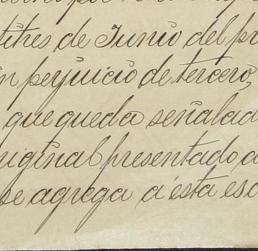 titres de Junio del pr
in perjuicio de tercero,
que queda señalad
riginal presentado a
se agrega á ésta esc